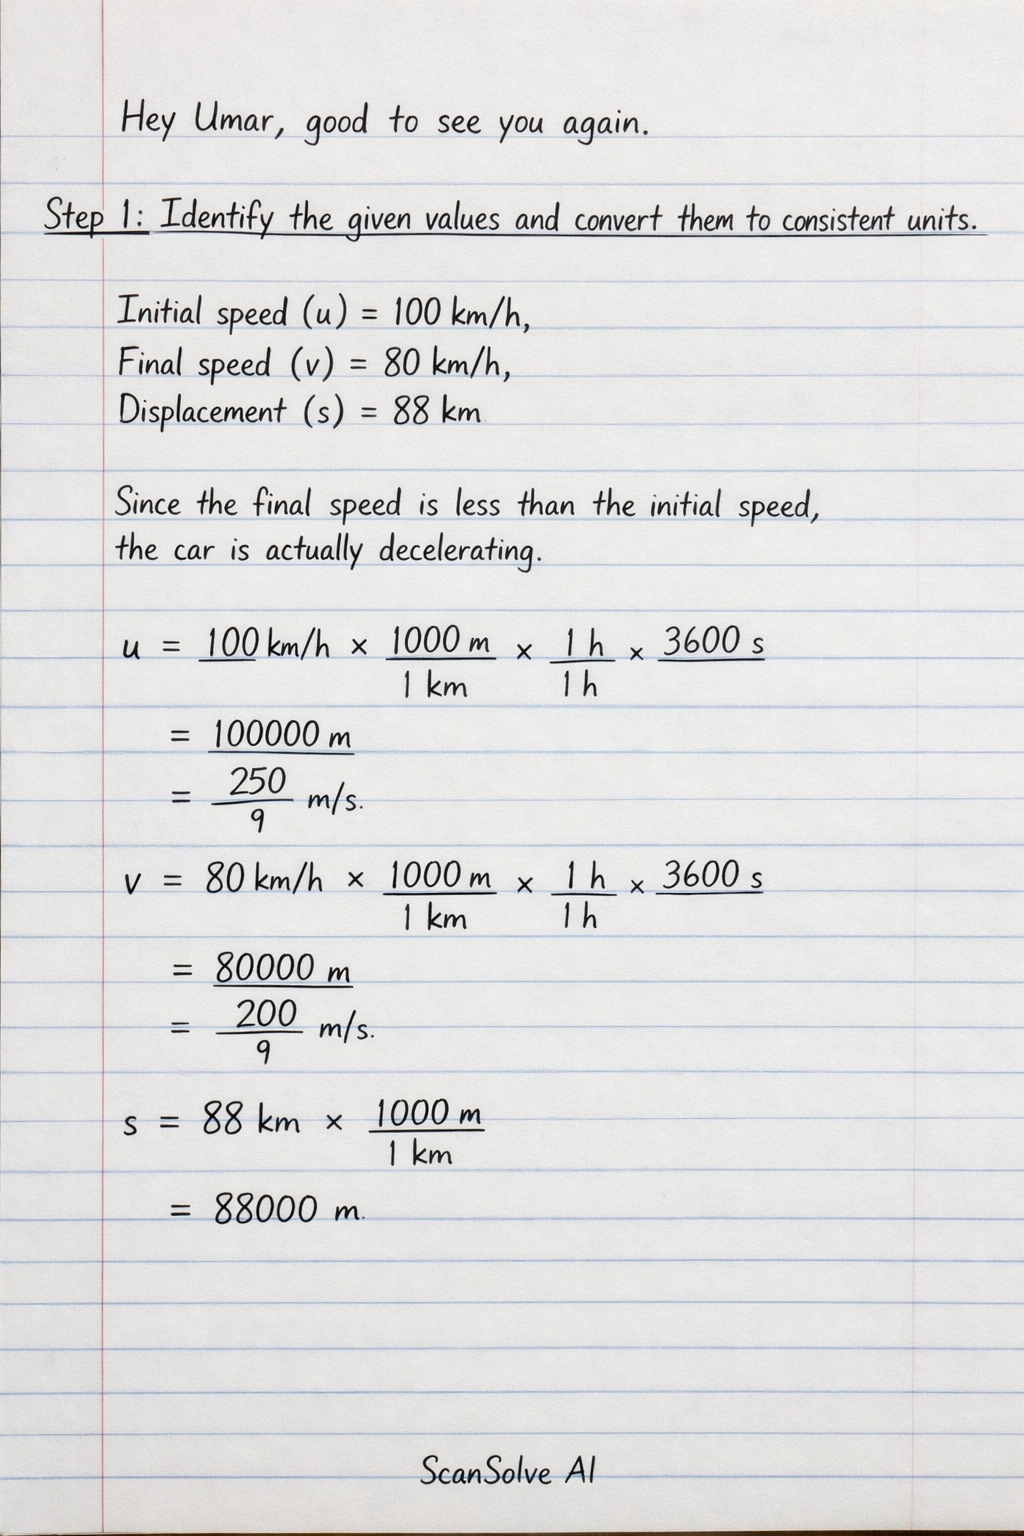 Hey Umar, good to see you again.
Step 1: Identify the given values and convert them to consistent units.
Initial speed (u) = 100 km/h,
Final speed (v) = 80 km/h,
Displacement (s) = 88 km
Since the final speed is less than the initial speed,
the car is actually decelerating.
u = 100 km/h × 1000 m / 1 km × 1 h / 1 h × 3600 s
= 100000 m
= 250 / 9 m/s.
v = 80 km/h × 1000 m / 1 km × 1 h / 1 h × 3600 s
= 80000 m
= 200 / 9 m/s.
s = 88 km × 1000 m / 1 km
= 88000 m.
ScanSolve AI